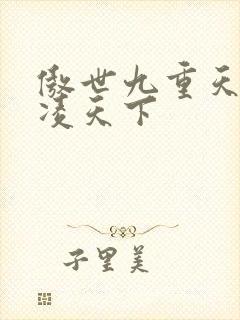 傲世九重天
凌天下
子里美